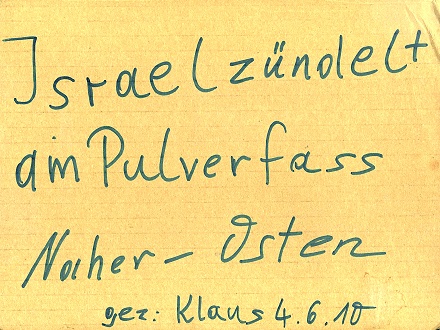 Israel zündelt
am Pulverfass
Naher - Osten
gez: Klaus 4.6.10